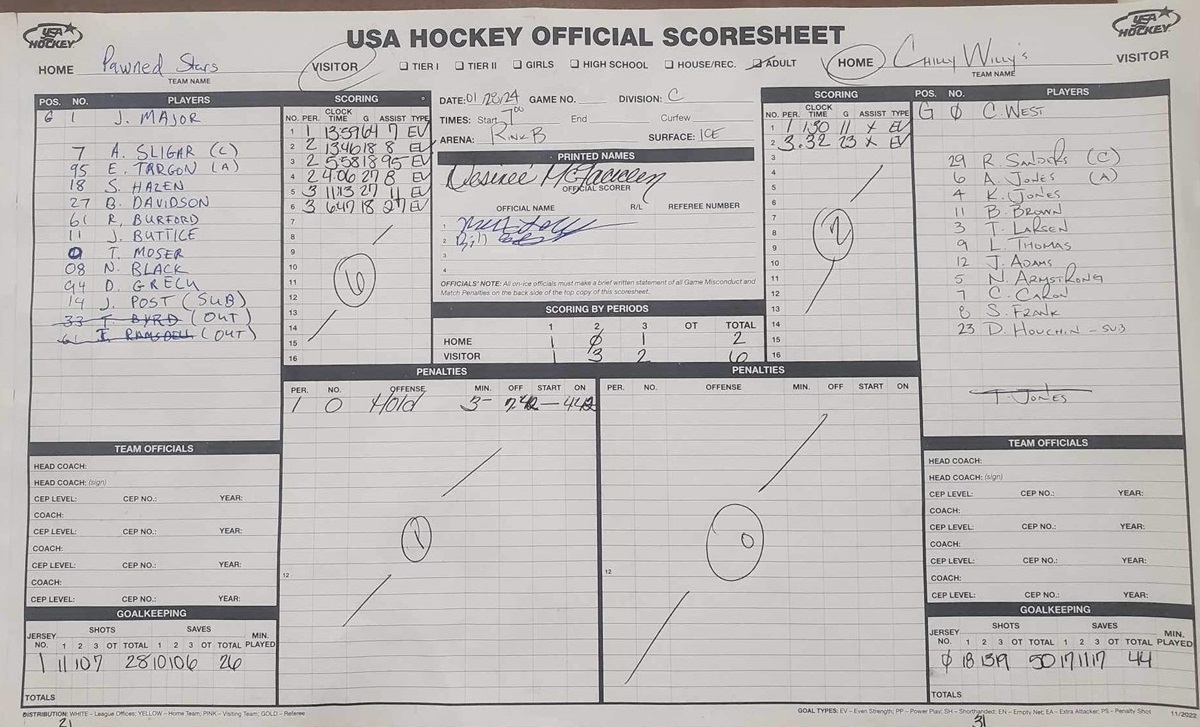 USA HOCKEY
USA HOCKEY OFFICIAL SCORESHEET
USA HOCKEY
HOME Pawned Stars VISITOR
TEAM NAME
TIER I TIER II GIRLS HIGH SCHOOL HOUSE/REC. ADULT
HOME CHILLY WILLY'S VISITOR
TEAM NAME
POS. NO. PLAYERS
G 1 J. MAJOR
7 A. SLIGAR (C)
95 E. TARGON (A)
18 S. HAZEN
27 B. DAVIDSON
61 R. BURFORD
11 J. BUTTICE
0 T. MOSER
08 N. BLACK
94 D. GRECH
14 J. POST (SUB)
33 T. BYRD (OUT)
61 T. RAMSDELL (OUT)
SCORING
NO. PER. CLOCK TIME G ASSIST TYPE
1 1 1359 64 7 EV
2 2 1346 18 8 EV
3 2 558 18 95 EV
4 2 406 27 8 EV
5 3 1113 27 11 EV
6 3 647 18 27 EV
7
8
9
10
11
12
13
14
15
16
6
DATE: 01/28/24 GAME NO. DIVISION: C
TIMES: Start 7:00 End Curfew
ARENA: RINK B SURFACE: ICE
PRINTED NAMES
Desiree
OFFICIAL SCORER
OFFICIAL NAME R/L REFEREE NUMBER
1
2
3
4
OFFICIALS' NOTE: All on-ice officials must make a brief written statement of all Game Misconduct and
Match Penalties on the back side of the top copy of this scoresheet.
SCORING BY PERIODS
1 2 3 OT TOTAL
HOME 1 0 1 2
VISITOR 1 3 2 6
SCORING
NO. PER. CLOCK TIME G ASSIST TYPE
1 1 1:30 11 X EV
2 3 3:32 23 X EV
3
4
5
6
7
8
9
10
11
12
13
14
15
16
2
POS. NO. PLAYERS
G 0 C. WEST
29 R. (C)
6 A. JONES (A)
4 K. JONES
11 B. BROWN
3 T. LARSEN
9 L. THOMAS
12 J. ADAMS
5 N. ARMSTRONG
7 C. CARON
8 S. FRANK
23 D. HOUCHIN - SUB
T. JONES
PENALTIES
PER. NO. OFFENSE MIN. OFF START ON
1 0 Hold 3 7:42 — 442
1
12
PENALTIES
PER. NO. OFFENSE MIN. OFF START ON
0
12
TEAM OFFICIALS
HEAD COACH:
HEAD COACH: (sign)
CEP LEVEL: CEP NO.: YEAR:
COACH:
CEP LEVEL: CEP NO.: YEAR:
COACH:
CEP LEVEL: CEP NO.: YEAR:
COACH:
CEP LEVEL: CEP NO.: YEAR:
GOALKEEPING
SHOTS SAVES
JERSEY NO. 1 2 3 OT TOTAL 1 2 3 OT TOTAL MIN. PLAYED
1 11 10 7 28 10 10 6 26
TOTALS
TEAM OFFICIALS
HEAD COACH:
HEAD COACH: (sign)
CEP LEVEL: CEP NO.: YEAR:
COACH:
CEP LEVEL: CEP NO.: YEAR:
COACH:
CEP LEVEL: CEP NO.: YEAR:
COACH:
CEP LEVEL: CEP NO.: YEAR:
GOALKEEPING
SHOTS SAVES
JERSEY NO. 1 2 3 OT TOTAL 1 2 3 OT TOTAL MIN. PLAYED
0 18 13 19 50 17 11 17 44
TOTALS
DISTRIBUTION: WHITE – League Offices; YELLOW – Home Team; PINK – Visiting Team; GOLD – Referee
GOAL TYPES: EV – Even Strength; PP – Power Play; SH – Shorthanded; EN – Empty Net; EA – Extra Attacker; PS – Penalty Shot
21
31